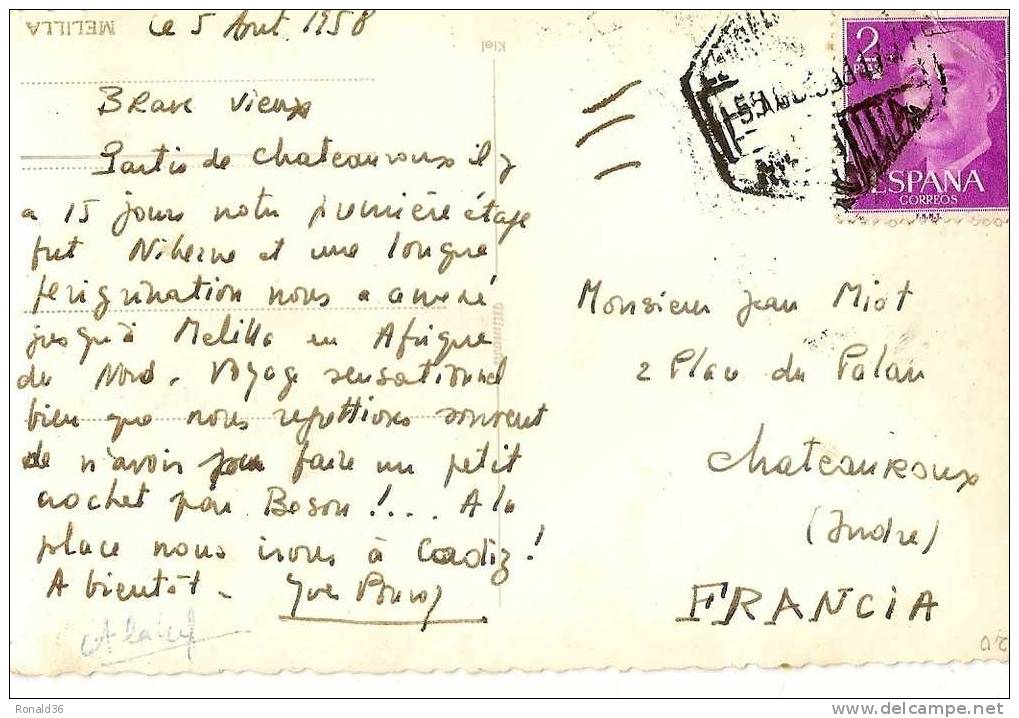 MELILLA
Le 5 Aout 1958
Kiel
Brave vieux
Partis de Chateauroux il y
a 15 jours notre première étape
fut et une longue
perigrination nous a amené
jusqu'à Melilla en Afrique
du Nord. Voyage sensationnel
bien que nous regrettions souvent
de n'avoir pu faire un petit
crochet par Boson !.... A la
place nous irons à Cadiz !
A bientôt - Yves
2 PTAS
ESPAÑA
CORREOS
F.N.M.T.
Monsieur Jean Miot
2 Place du Palan
Chateauroux
(Indre)
FRANCIA
20
Ronald36
www.delcampe.net